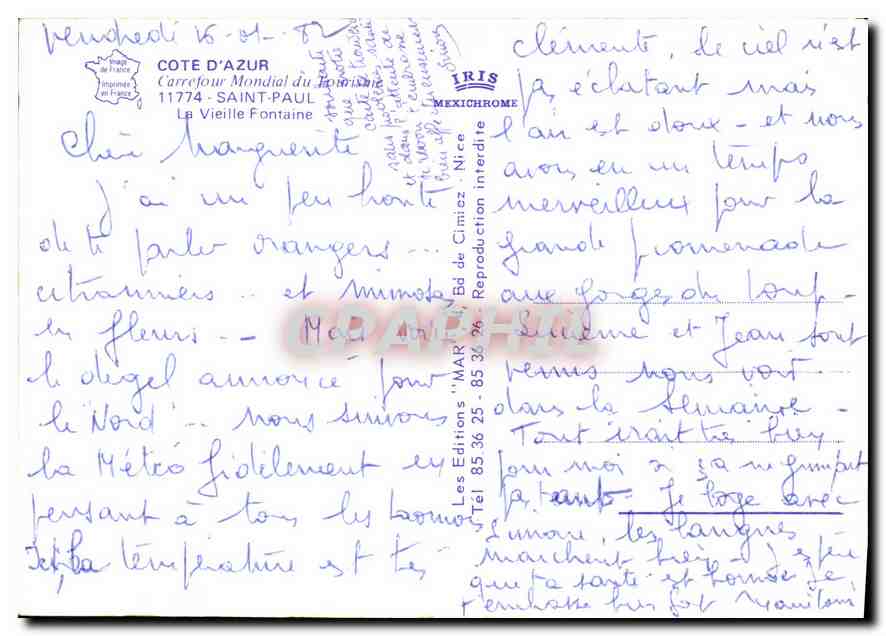 Vendredi 15-01-82
Image
de France
Imprimée
en France
COTE D'AZUR
Carrefour Mondial du Tourisme
11774 - SAINT-PAUL
La Vieille Fontaine
IRIS
MEXICHROME
Les Editions "MAR", Bd de Cimiez - Nice
Tél 85 36 25 - 85 36 26 - Reproduction interdite
CPAPHIL
Chère Marguerite
J'ai un peu honte
de te parler orangers...
citronniers .. et mimosas
en fleurs -- Mais
le dégel annoncé pour
le "Nord" .. nous suivons
la Météo fidèlement en
pensant à tous les
Ici, la température est très
clémente, le ciel n'est
pas éclatant mais
l'air est doux - et nous
avons eu un temps
merveilleux pour la
grande promenade
aux gorges du Loup -
et Jean sont
venus nous voir
dans la semaine -
Tout irait très bien
pour moi si ça ne grimpait
pas tant - Je loge avec
Simone, les langues
marchent bien - J'espère
que ta santé est bonne Je
t'embrasse bien fort